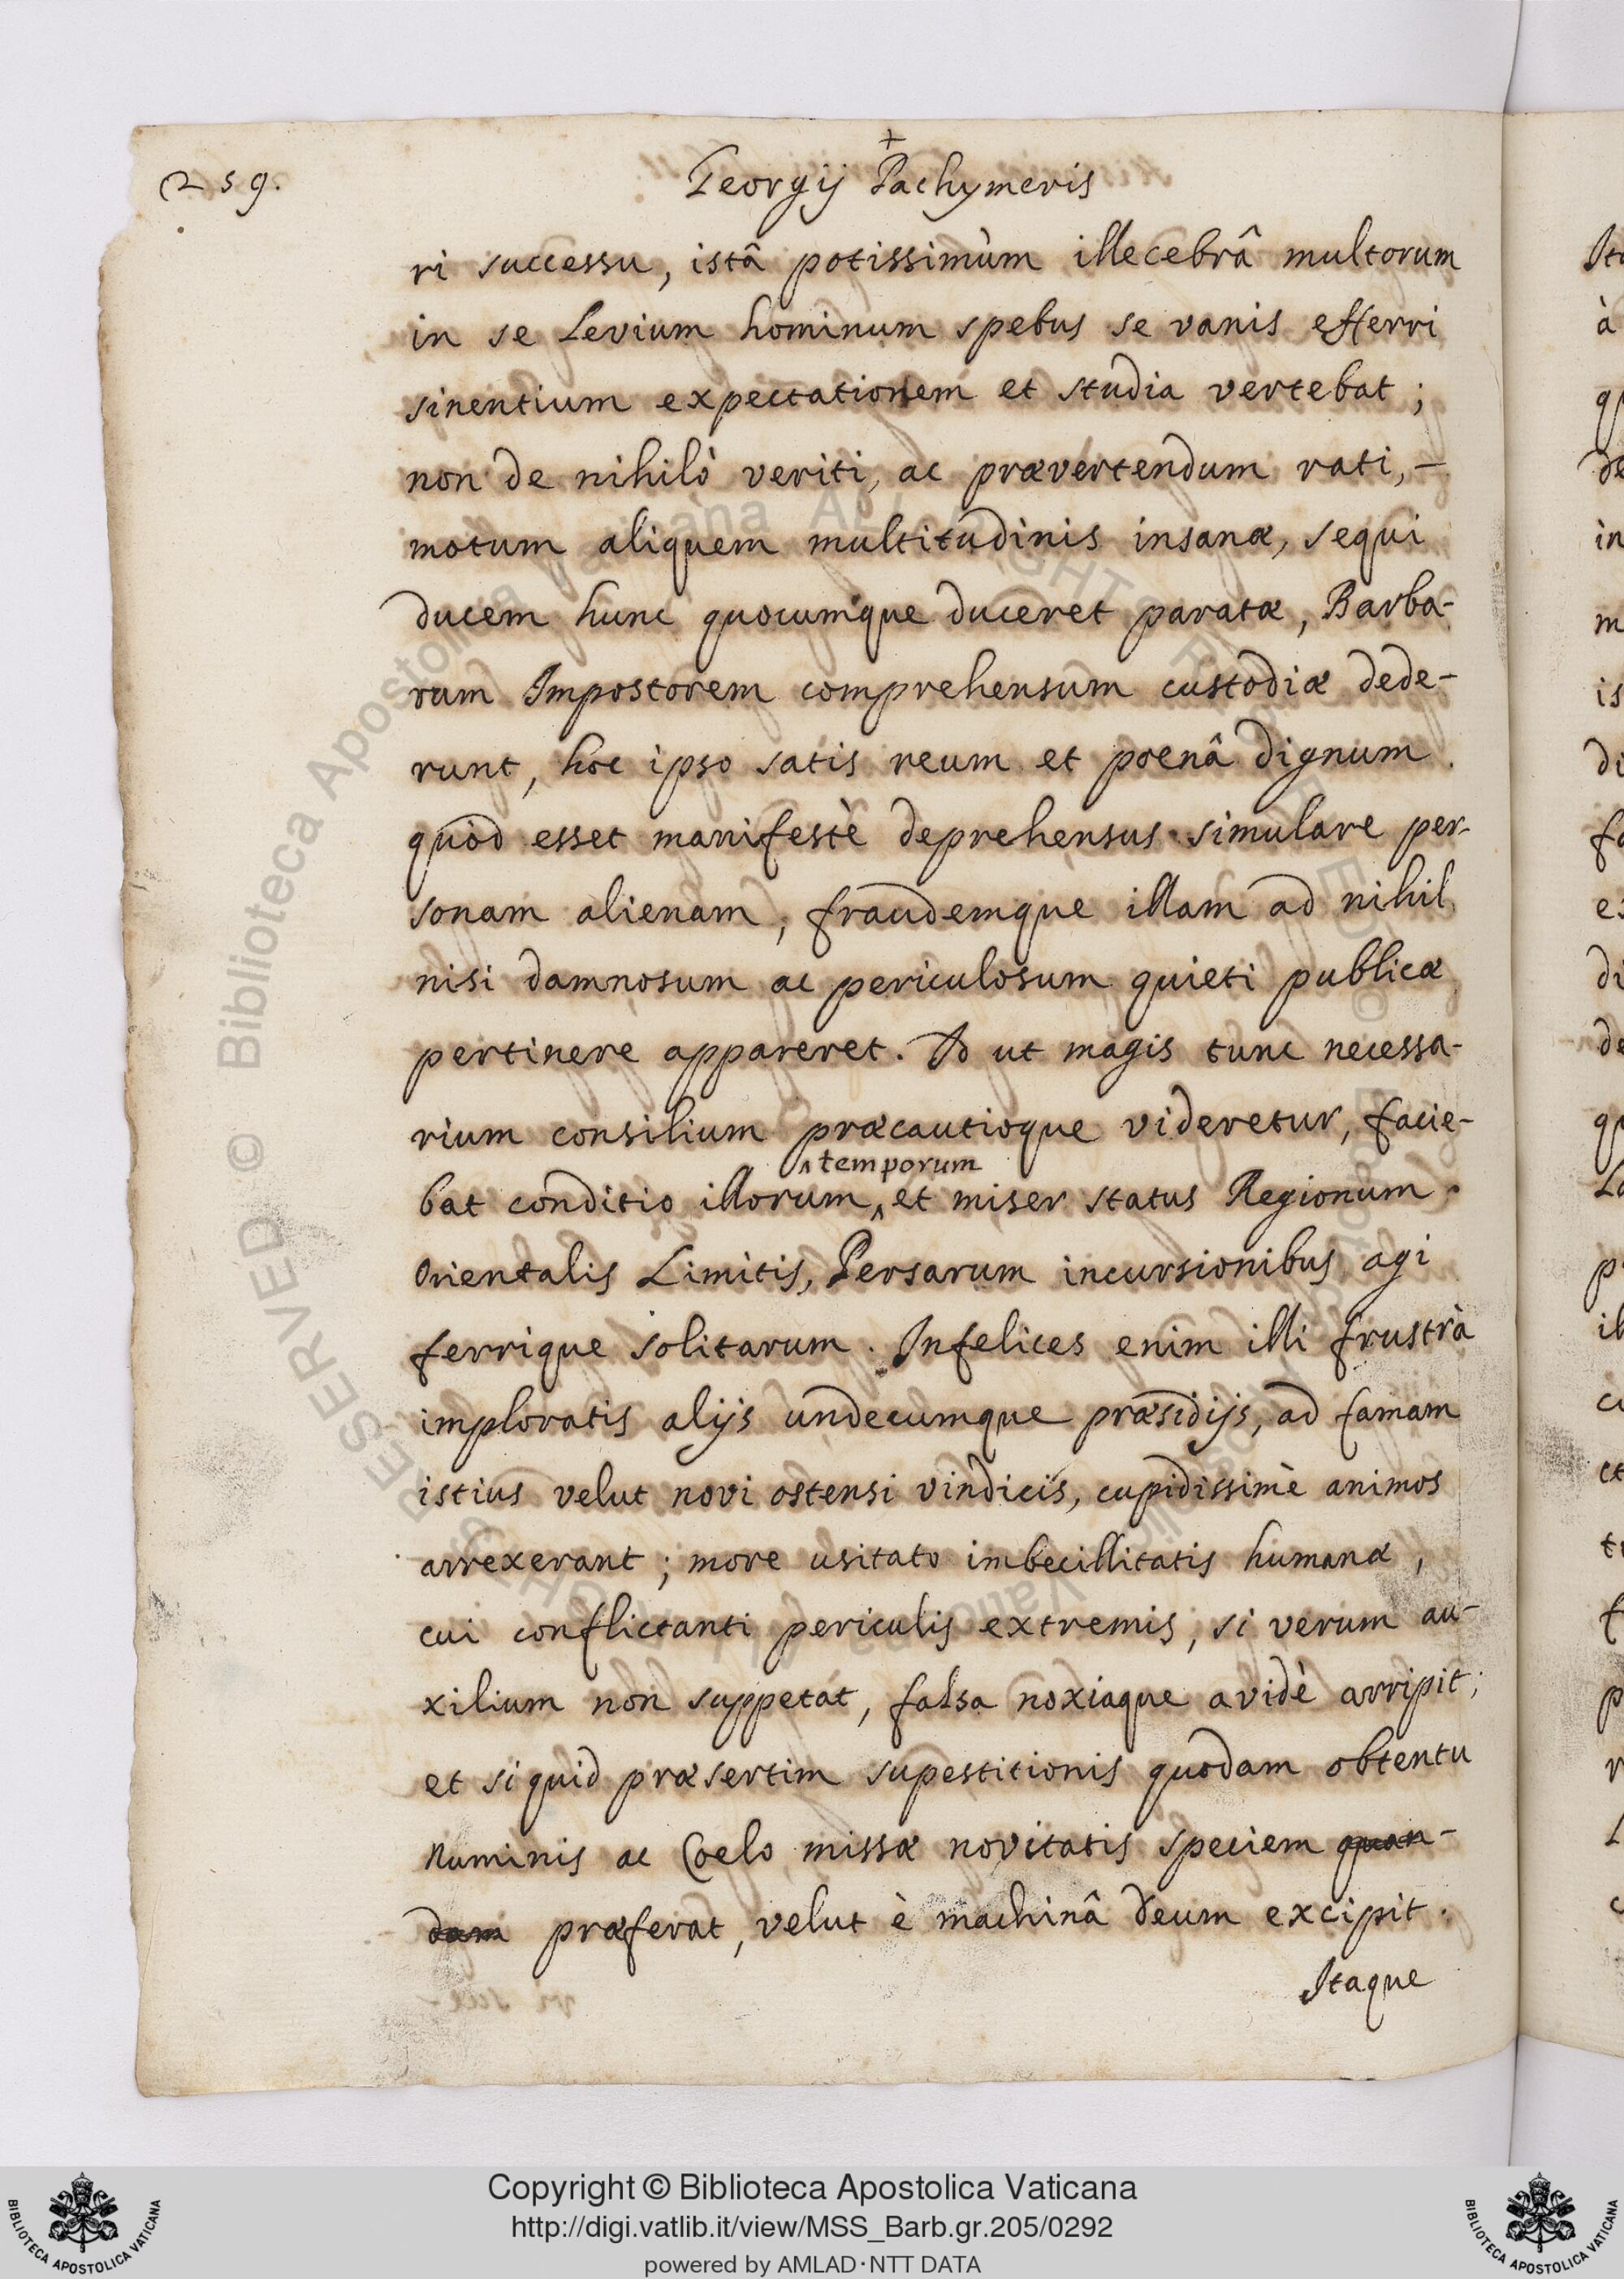 259.
+
Georgij Pachymeris
ri successu, istâ potissimùm illecebrâ multorum
in se Levium hominum spebus se vanis efferri
sinentium expectationem et studia vertebat;
non de nihilò veriti, ac prævertendum rati, -
motum aliquem multitudinis insanæ, sequi
ducem hunc quocumque duceret paratæ, Barba-
rum Impostorem comprehensum custodiæ dede-
runt, hoc ipso satis reum et poenâ dignum
quòd esset manifestè deprehensus simulare per-
sonam alienam, fraudemque illam ad nihil
nisi damnosum ac periculosum quieti publicæ
pertinere appareret. Id ut magis tunc necessa-
rium consilium præcautioque videretur, facie-
^ temporum
bat conditio illorum ^ et miser status Regionum
Orientalis Limitis, Persarum incursionibus agi
ferrique solitarum. Infelices enim illi frustrà
imploratis alijs undecumque præsidijs, ad famam
istius velut novi ostensi vindicis, cupidissimè animos
arrexerant; more usitato imbecillitatis humanæ,
cui conflictanti periculis extremis, si verum au-
xilium non suppetat, falsa noxiaque avidè arripit;
et si quid præsertim supestitionis quodam obtentu
Numinis ac Coelo missæ novitatis speciem quan-
dam præferat, velut è machinâ deum excipit.
Itaque
© Biblioteca Apostolica Vaticana ALL RIGHTS RESERVED
Copyright © Biblioteca Apostolica Vaticana
http://digi.vatlib.it/view/MSS_Barb.gr.205/0292
powered by AMLAD·NTT DATA
BIBLIOTECA APOSTOLICA VATICANA
BIBLIOTECA APOSTOLICA VATICANA